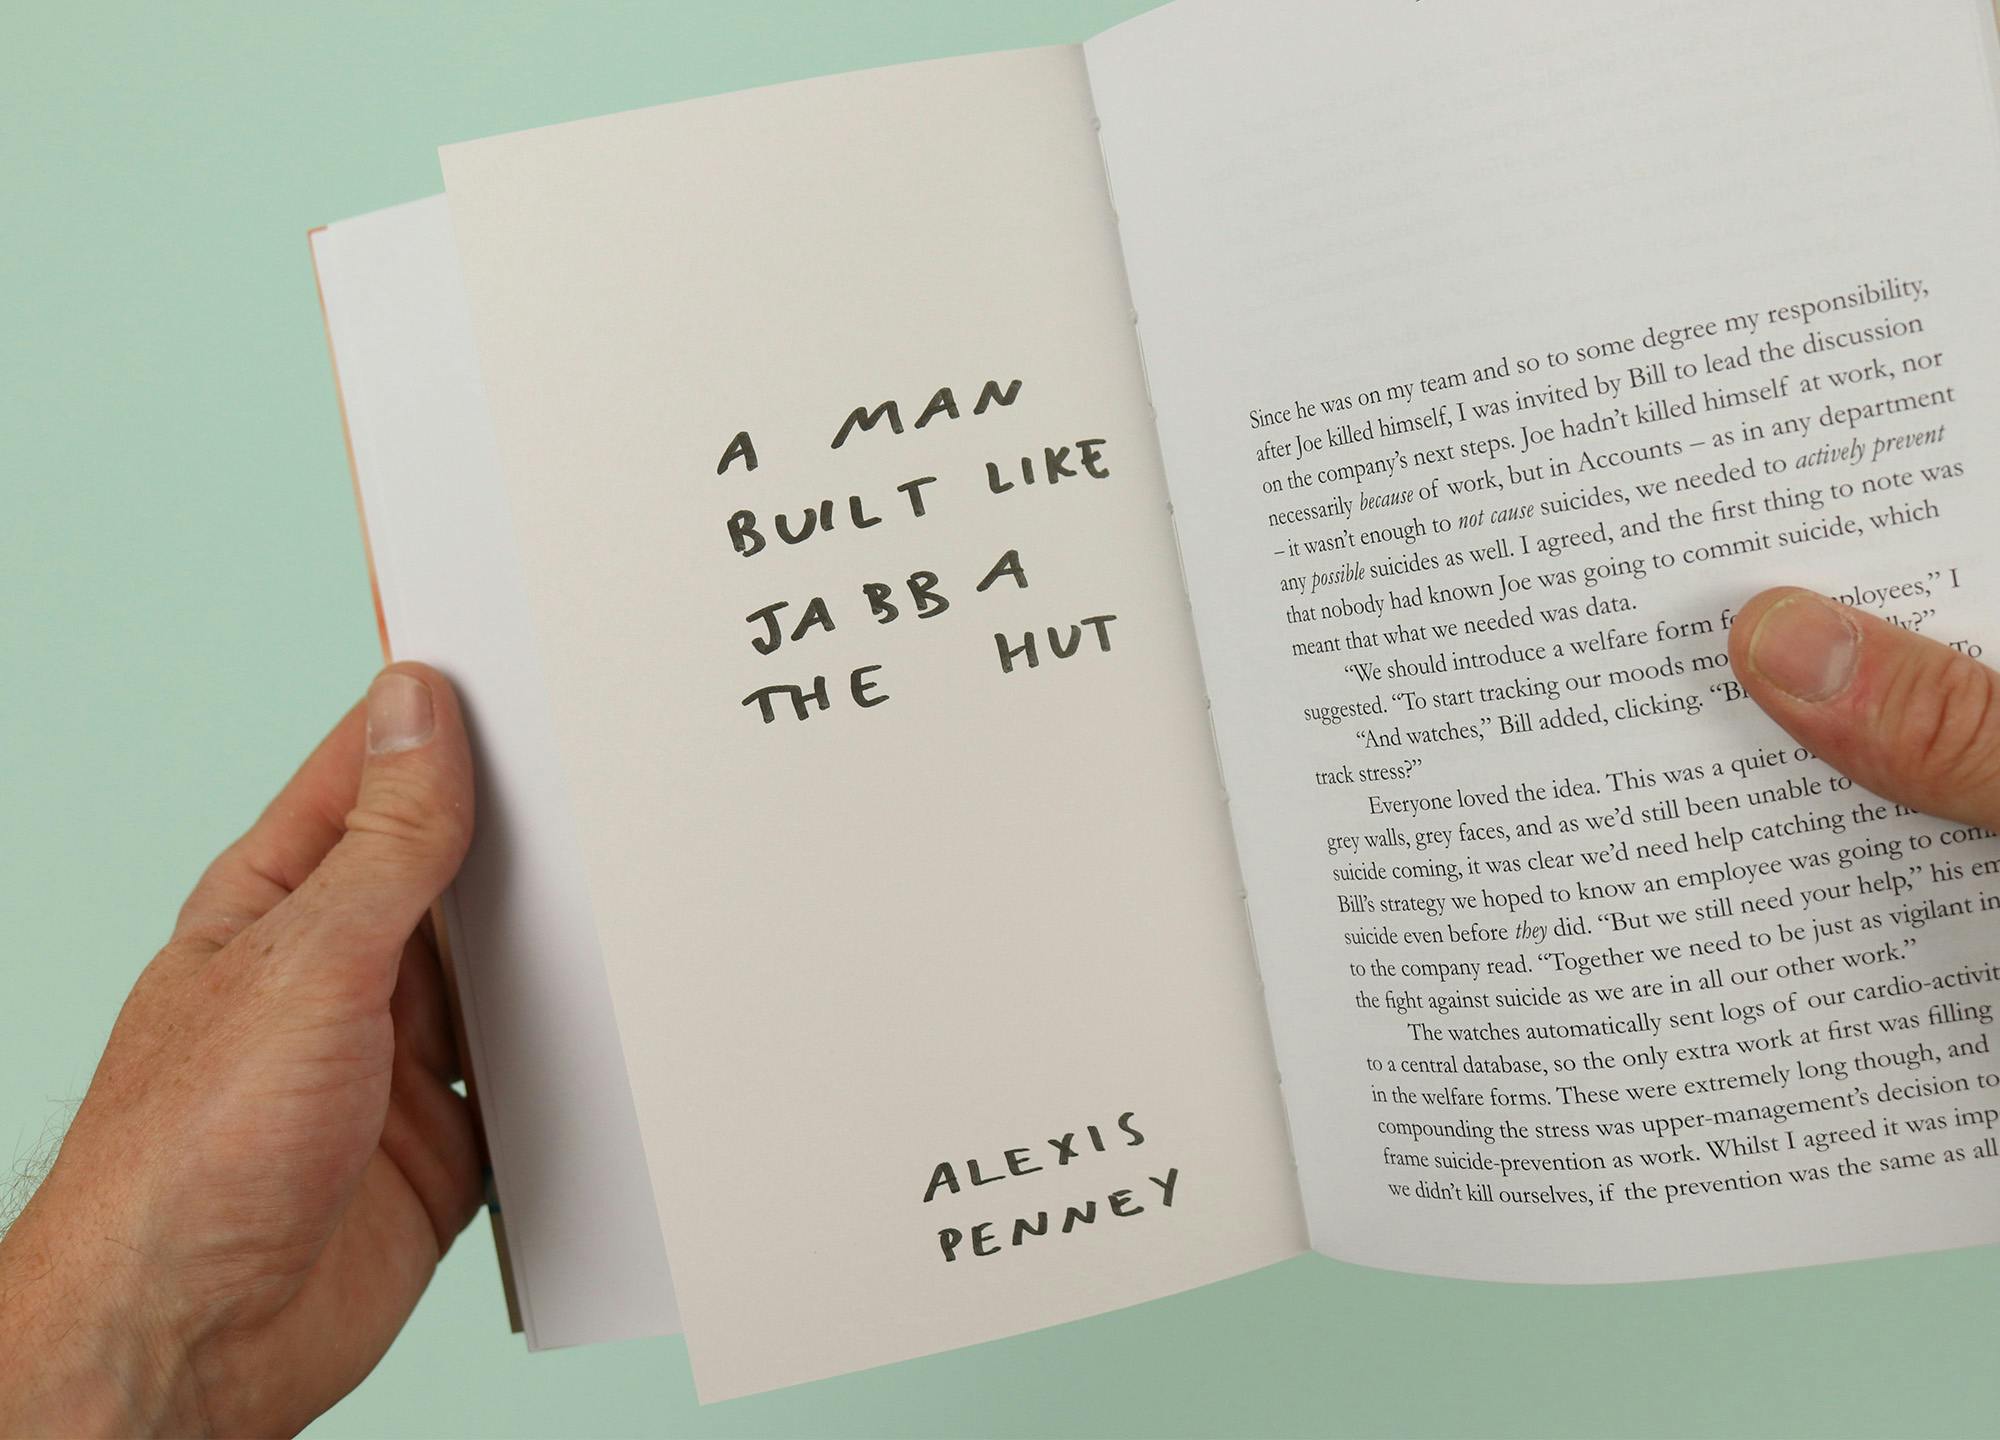 A MAN
BUILT LIKE
JABBA
THE HUT
ALEXIS
PENNEY
Since he was on my team and so to some degree my responsibility,
after Joe killed himself, I was invited by Bill to lead the discussion
on the company’s next steps. Joe hadn’t killed himself at work, nor
necessarily because of work, but in Accounts – as in any department
– it wasn’t enough to not cause suicides, we needed to actively prevent
any possible suicides as well. I agreed, and the first thing to note was
that nobody had known Joe was going to commit suicide, which
meant that what we needed was data.
“We should introduce a welfare form employees,” I
suggested. “To start tracking our moods
“And watches,” Bill added, clicking. To
track stress?”
Everyone loved the idea. This was a quiet
grey walls, grey faces, and as we’d still been unable to
suicide coming, it was clear we’d need help catching the
Bill’s strategy we hoped to know an employee was going to
suicide even before they did. “But we still need your help,” his
to the company read. “Together we need to be just as vigilant in
the fight against suicide as we are in all our other work.”
The watches automatically sent logs of our cardio-activit
to a central database, so the only extra work at first was filling
in the welfare forms. These were extremely long though, and
compounding the stress was upper-management’s decision to
frame suicide-prevention as work. Whilst I agreed it was imp
we didn’t kill ourselves, if the prevention was the same as all